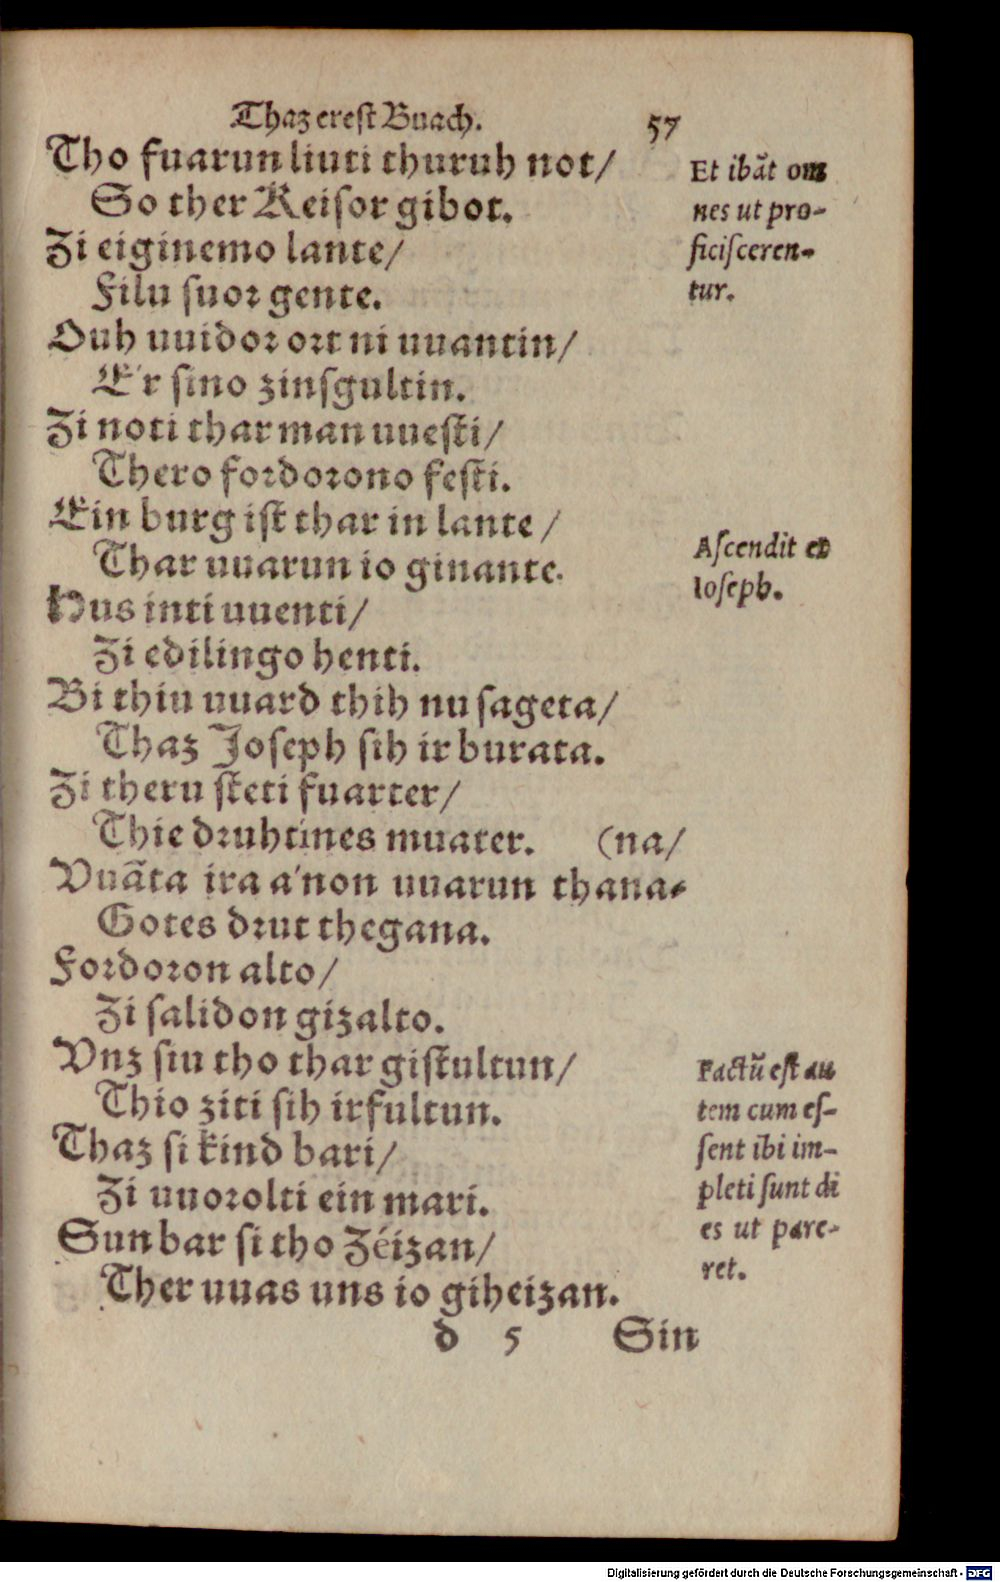 Thaz erest Buach. 57
Tho fuarun liuti thuruh not/
So ther Keisor gibot.
Zi eiginemo lante/
Filu suor gente.
Ouh uuidor ort ni uuantin/
E'r sino zinsgultin.
Zi noti thar man uuesti/
Thero fordorono festi.
Ein burg ist thar in lante /
Thar uuarun io ginante.
Hus inti uuenti/
Zi edilingo henti.
Bi thiu uuard thih nu sageta/
Thaz Joseph sih ir burata.
Zi theru steti fuarter/
Thie druhtines muater. (na/
Vuãta ira a'non uuarun thana-
Gotes drut thegana.
Fordoron alto/
Zi salidon gizalto.
Vnz siu tho thar gistultun/
Thio ziti sih irfultun.
Thaz si kind bari/
Zi uuorolti ein mari.
Sun bar si tho Zéizan/
Ther uuas uns io giheizan.
d 5 Sin
Et ibãt om
nes ut pro-
ficisceren-
tur.
Ascendit et
Ioseph.
Factũ est au
tem cum es-
sent ibi im-
pleti sunt di
es ut pare-
ret.
Digitalisierung gefördert durch die Deutsche Forschungsgemeinschaft - DFG